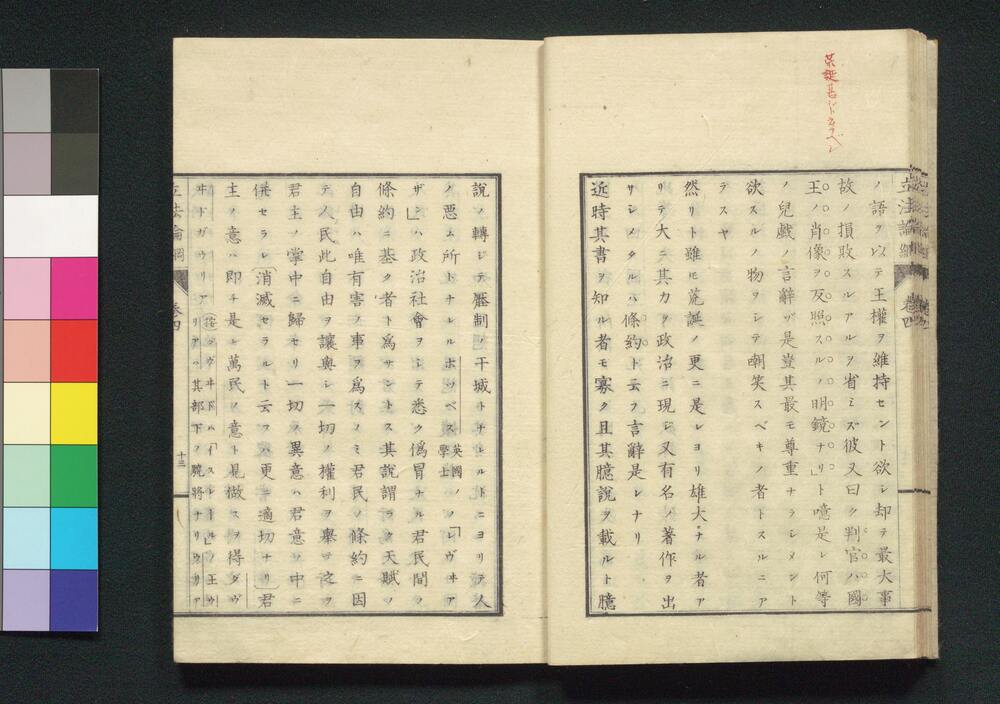 荒誕甚シト云フベシ
立法論綱
卷四
ノ語ヲ以テ王權ヲ維持セント欲シ却テ最大事
故ノ損敗スルアルヲ省ミズ彼又曰ク判官ハ國
王ノ肖像ヲ反照スルノ明鏡ナリト噫是レ何等
ノ兒戲ノ言辭ゾ是豈其最モ尊重ナラシメント
欲スルノ物ヲシテ嘲笑スベキノ者トスルニア
ラスヤ
然リト雖モ荒誕ノ更ニ是レヨリ雄大ナル者ア
リテ大ニ其力ヲ政治ニ現シ又有名ノ著作ヲ出
サシメタルハ條約ト云フ言辭是レナリ
近時其書ヲ知ル者モ寡ク且其臆說ヲ載ルト臆
說ノ轉シテ壓制ノ干城トナレルトニヨリテ人
ノ悪ム所トナレルホッベス英國ノ學士ノ「レヴヰア
ザン」ハ政治社會ヲ以テ悉ク僞冒ナル君民間ノ
條約ニ基ク者ト爲サントス其說謂ラク天賦ノ
自由ハ唯有害ノ事ヲ爲スノミ君民ノ條約ニ因
テ人民此自由ヲ讓與シ一切ノ權利ヲ擧テ之ヲ
君主ノ掌中ニ歸セリ一切ノ異意ハ君意ノ中ニ
併セラレ(消滅セラルト云フハ更ニ適切ナリ)君
主ノ意ハ即チ是レ萬民ノ意ト見做スヲ得ダヴ
ヰドガウリア
立法論綱
卷四
十三